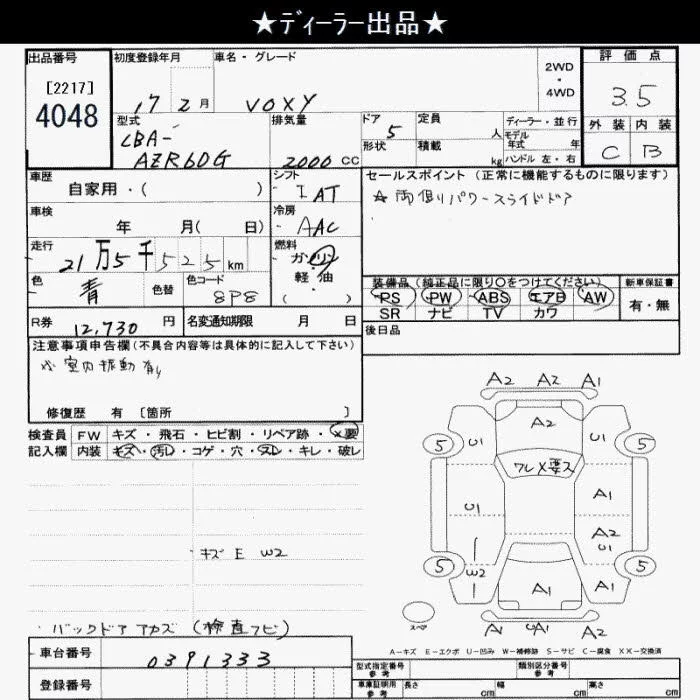 ★ディーラー出品★
出品番号
[2217]
4048
初度登録年月
17 2月
車名・グレード
VOXY
2WD
・
4WD
評価点
3.5
外装 内装
C B
型式
CBA-
AZR60G
排気量
2000 CC
ドア
5
形状
定員
人
積載
kg
ディーラー・並行
モデル
年式 年
ハンドル 左・右
車歴
自家用・( )
シフト
IAT
車検
年 月( 日)
冷房
AAC
走行
21万5千525km
燃料
ガソリン
軽油
( )
色
青
色替
色コード
8P8
セールスポイント (正常に機能するものに限ります)
☆両側パワースライドドア
装備品(純正品に限り〇をつけてください)
PS PW ABS エアB AW
SR ナビ TV カワ
新車保証書
有・無
後日品
R券
12,730 円
名変通知期限 月 日
注意事項申告欄(不具合内容等は具体的に記入して下さい)
※室内振動有り
修復歴 有 [箇所 ]
検査員
記入欄
FW キズ・飛石・ヒビ割・リペア跡・X要
内装 キズ・汚レ・コゲ・穴・スレ・キレ・破レ
キズ E W2
バックドア アカズ (検査フビ)
車台番号
0391333
登録番号
A2 A2 A1
A2
5 U1 U1 5
ワレX要ス
A1
U1
A2
U1
5 W2 A1 A1 5
スペア
A1 A2
A-キズ E-エクボ U-凹み W-補修跡 S-サビ C-腐食 XX-交換済
型式指定番号
参考
類別区分番号
車庫証明用
参考
長さ cm 幅 cm 高さ cm